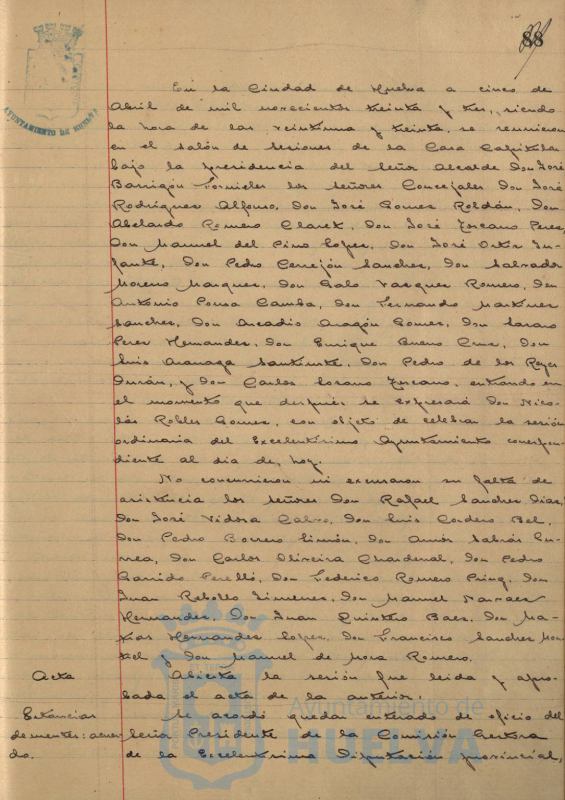 88
AYUNTAMIENTO DE HUELVA
En la Ciudad de Huelva a cinco de
Abril de mil novecientos treinta y tres, siendo
la hora de las veintiuna y treinta, se reunieron
en el salón de sesiones de la Casa Capitular
bajo la presidencia del Señor Alcalde Don José
Barrigón Fornieles los señores Concejales Don José
Rodríguez Alfonso, Don José Gomez Roldán, Don
Abelardo Romero Claret, Don José Toscano Perez,
Don Manuel del Pino Lopez, Don José Ortiz In-
fante, Don Pedro Cerrejón Sanchez, Don Salvador
Moreno Marquez, Don Galo Vazquez Romero, Don
Antonio Pousa Camba, Don Fernando Martinez
Sanchez, Don Arcadio Aragón Gomez, Don Lazaro
Perez Hernandez, Don Enrique Bueno Cruz, Don
Luis Aranaga Santiuste, Don Pedro de los Reyes
Durán, y Don Carlos Lozano Toscano, entrando en
el momento que después se expresará Don Nico-
lás Robles Gomez, con objeto de celebrar la sesión
ordinaria del Excelentísimo Ayuntamiento correspon-
diente al dia de hoy.
No concurrieron ni excusaron su falta de
asistencia los señores Don Rafael Sanchez Diaz,
Don José Vidosa Calvo, Don Luis Cordero Bel,
Don Pedro Borrero Limón, Don Amós Sabrás Gu-
rrea, Don Carlos Oliveira Chardenal, Don Pedro
Garrido Perelló, Don Federico Romero Don
Juan Rebollo Jimenez, Don Manuel Narvaez
Hernandez, Don Juan Quintero Baez, Don Ma-
tias Hernandez Lopez, Don Francisco Sanchez Mon-
tiel y Don Manuel de Mora Romero.
Acta
Abierta la sesión fue leida y apro-
bada el acta de la anterior.
Estancias
de mentes: acuer
do.
Se acordó quedar enterado de oficio del
Señor Presidente de la Comisión Gestora
de la Excelentísima Diputación provincial,
Ayuntamiento de
HUELVA